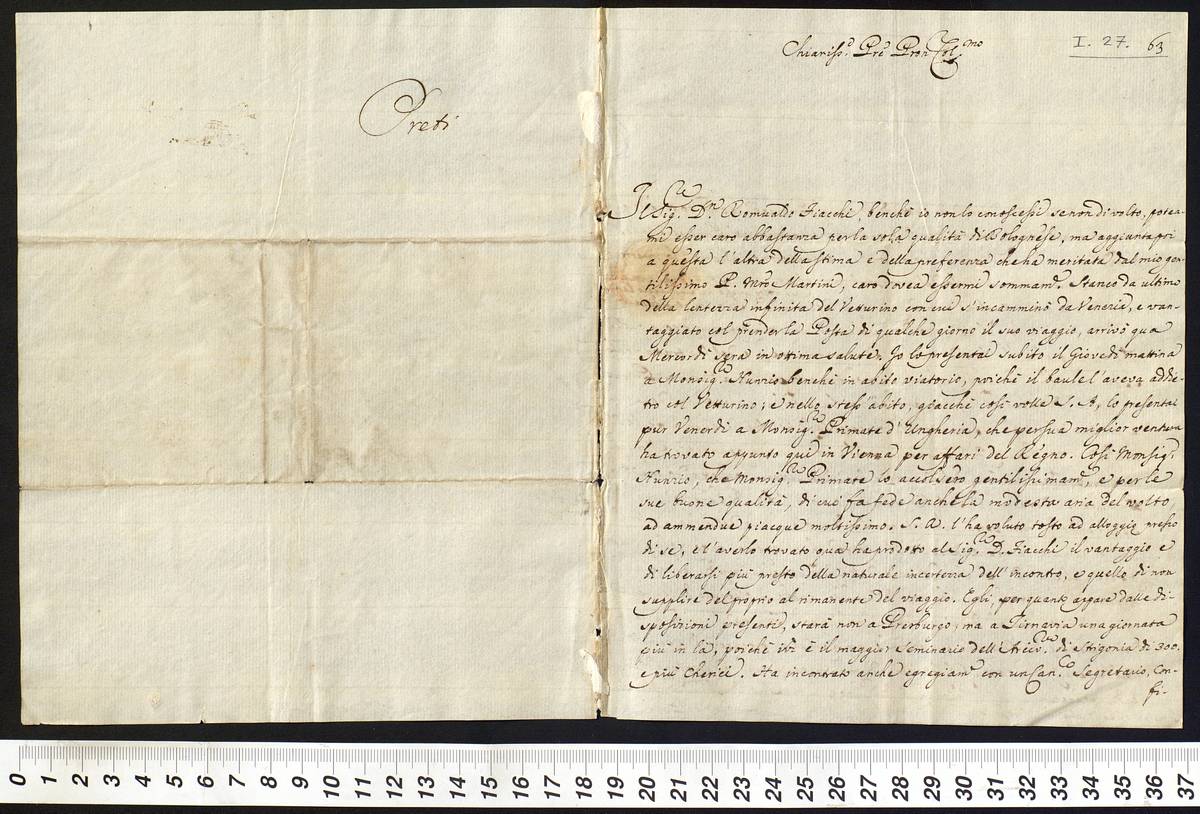 Preti
I. 27. 63
Chiariss.o Pre Pron Col.mo
Il Sig.re D.n Romualdo Fiacchi, benchè io non lo conoscessi se non di volto, potea-
mi esser caro abbastanza per la sola qualità di Bolognese, ma aggiunta poi
a questa l'altra della stima e della preferenza che ha meritata dal mio gen-
tilissimo P. Mro Martini, caro dovea essermi sommam.e Stanco da ultimo
della lentezza infinita del Vetturino con cui s'incamminò da Venezia, e van-
taggiato col prender la Posta di qualche giorno il suo viaggio, arrivò qua
Mercordì sera in ottima salute. Io lo presentai subito il Giovedì mattina
a Monsig.re Nunzio benchè in abito viatorio, poichè il baule l'aveva addie-
tro col Vetturino; e nello stess'abito, giacchè così volle S. A, lo presentai
pur Venerdì a Monsig.re Primate d'Ungheria, che per sua miglior ventura
ha trovato appunto qui in Vienna per affari del Regno. Così Monsig.r
Nunzio, che Monsig.re Primate lo accolsero gentilissimam.e, e per le
sue buone qualità, di cui fa fede anche la modesta aria del volto,
ad ammendue piacque moltissimo. S. A. l'ha voluto tosto ad alloggio presso
di se, e l'averlo trovato qua ha prodotto al Sig.re D. Fiacchi il vantaggio e
di liberarsi più presto della naturale incertezza dell'incontro, e quello di non
supplire del proprio al rimanente del viaggio. Egli, per quanto appare dalle di-
sposizioni presenti, starà non a Presburgo, ma a Tirnavia una giornata
più in là, poichè ivi è il maggior Seminario dell'Arciv.re di Strigonia di 300.
e più Cherici. Ha incontrato anche egregiam.e con un Can.co Segretario, Con-
fi-
0 1 2 3 4 5 6 7 8 9 10 11 12 13 14 15 16 17 18 19 20 21 22 23 24 25 26 27 28 29 30 31 32 33 34 35 36 37